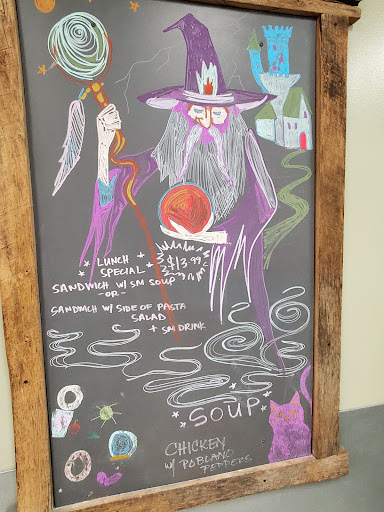 LUNCH
SPECIAL
$13.99
SANDWICH W/ SM SOUP
-OR-
SANDWICH W/ SIDE OF PASTA
SALAD
+ SM DRINK
SOUP
CHICKEN
W/ POBLANO
PEPPERS